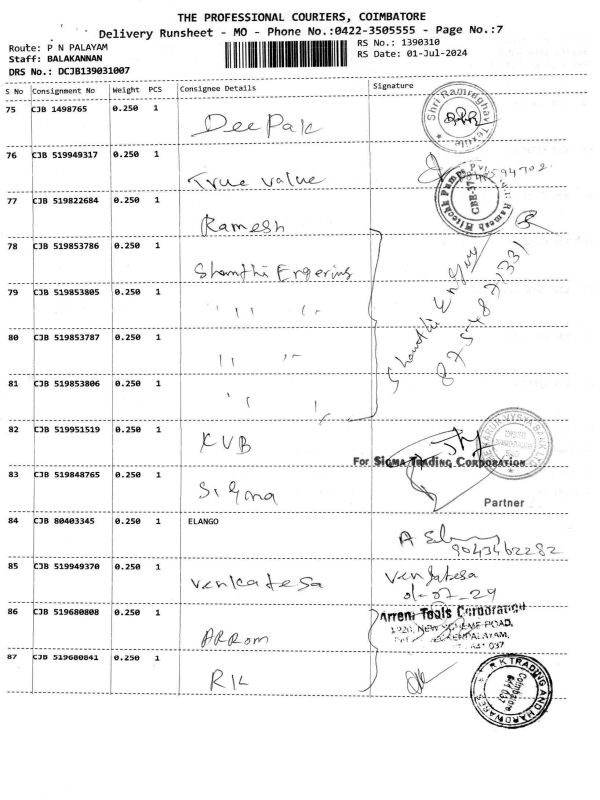 THE PROFESSIONAL COURIERS, COIMBATORE
Delivery Runsheet - MO - Phone No.:0422-3505555 - Page No.:7
Route: P N PALAYAM
RS No.: 1390310
Staff: BALAKANNAN
RS Date: 01-Jul-2024
DRS No.: DCJB139031007
S No Consignment No Weight PCS Consignee Details Signature
75 CJB 1498765 0.250 1 Deepak
76 CJB 519949317 0.250 1 True value
77 CJB 519822684 0.250 1 Ramesh
78 CJB 519853786 0.250 1 Shanthi
79 CJB 519853805 0.250 1 " "
80 CJB 519853787 0.250 1 " "
81 CJB 519853806 0.250 1 " "
Shanthi
82 CJB 519951519 0.250 1 KVB
For SIGMA TRADING CORPORATION
83 CJB 519848765 0.250 1 Sigma
Partner
84 CJB 80403345 0.250 1 ELANGO
9043462282
85 CJB 519949370 0.250 1 Venkatesa
01-07-29
86 CJB 519680808 0.250 1 ARRom
Arrem Tools Corporation
NEW SCHEME ROAD,
87 CJB 519680841 0.250 1 RK
R K TRADING AND HARDWARES
Coimbatore
641 037